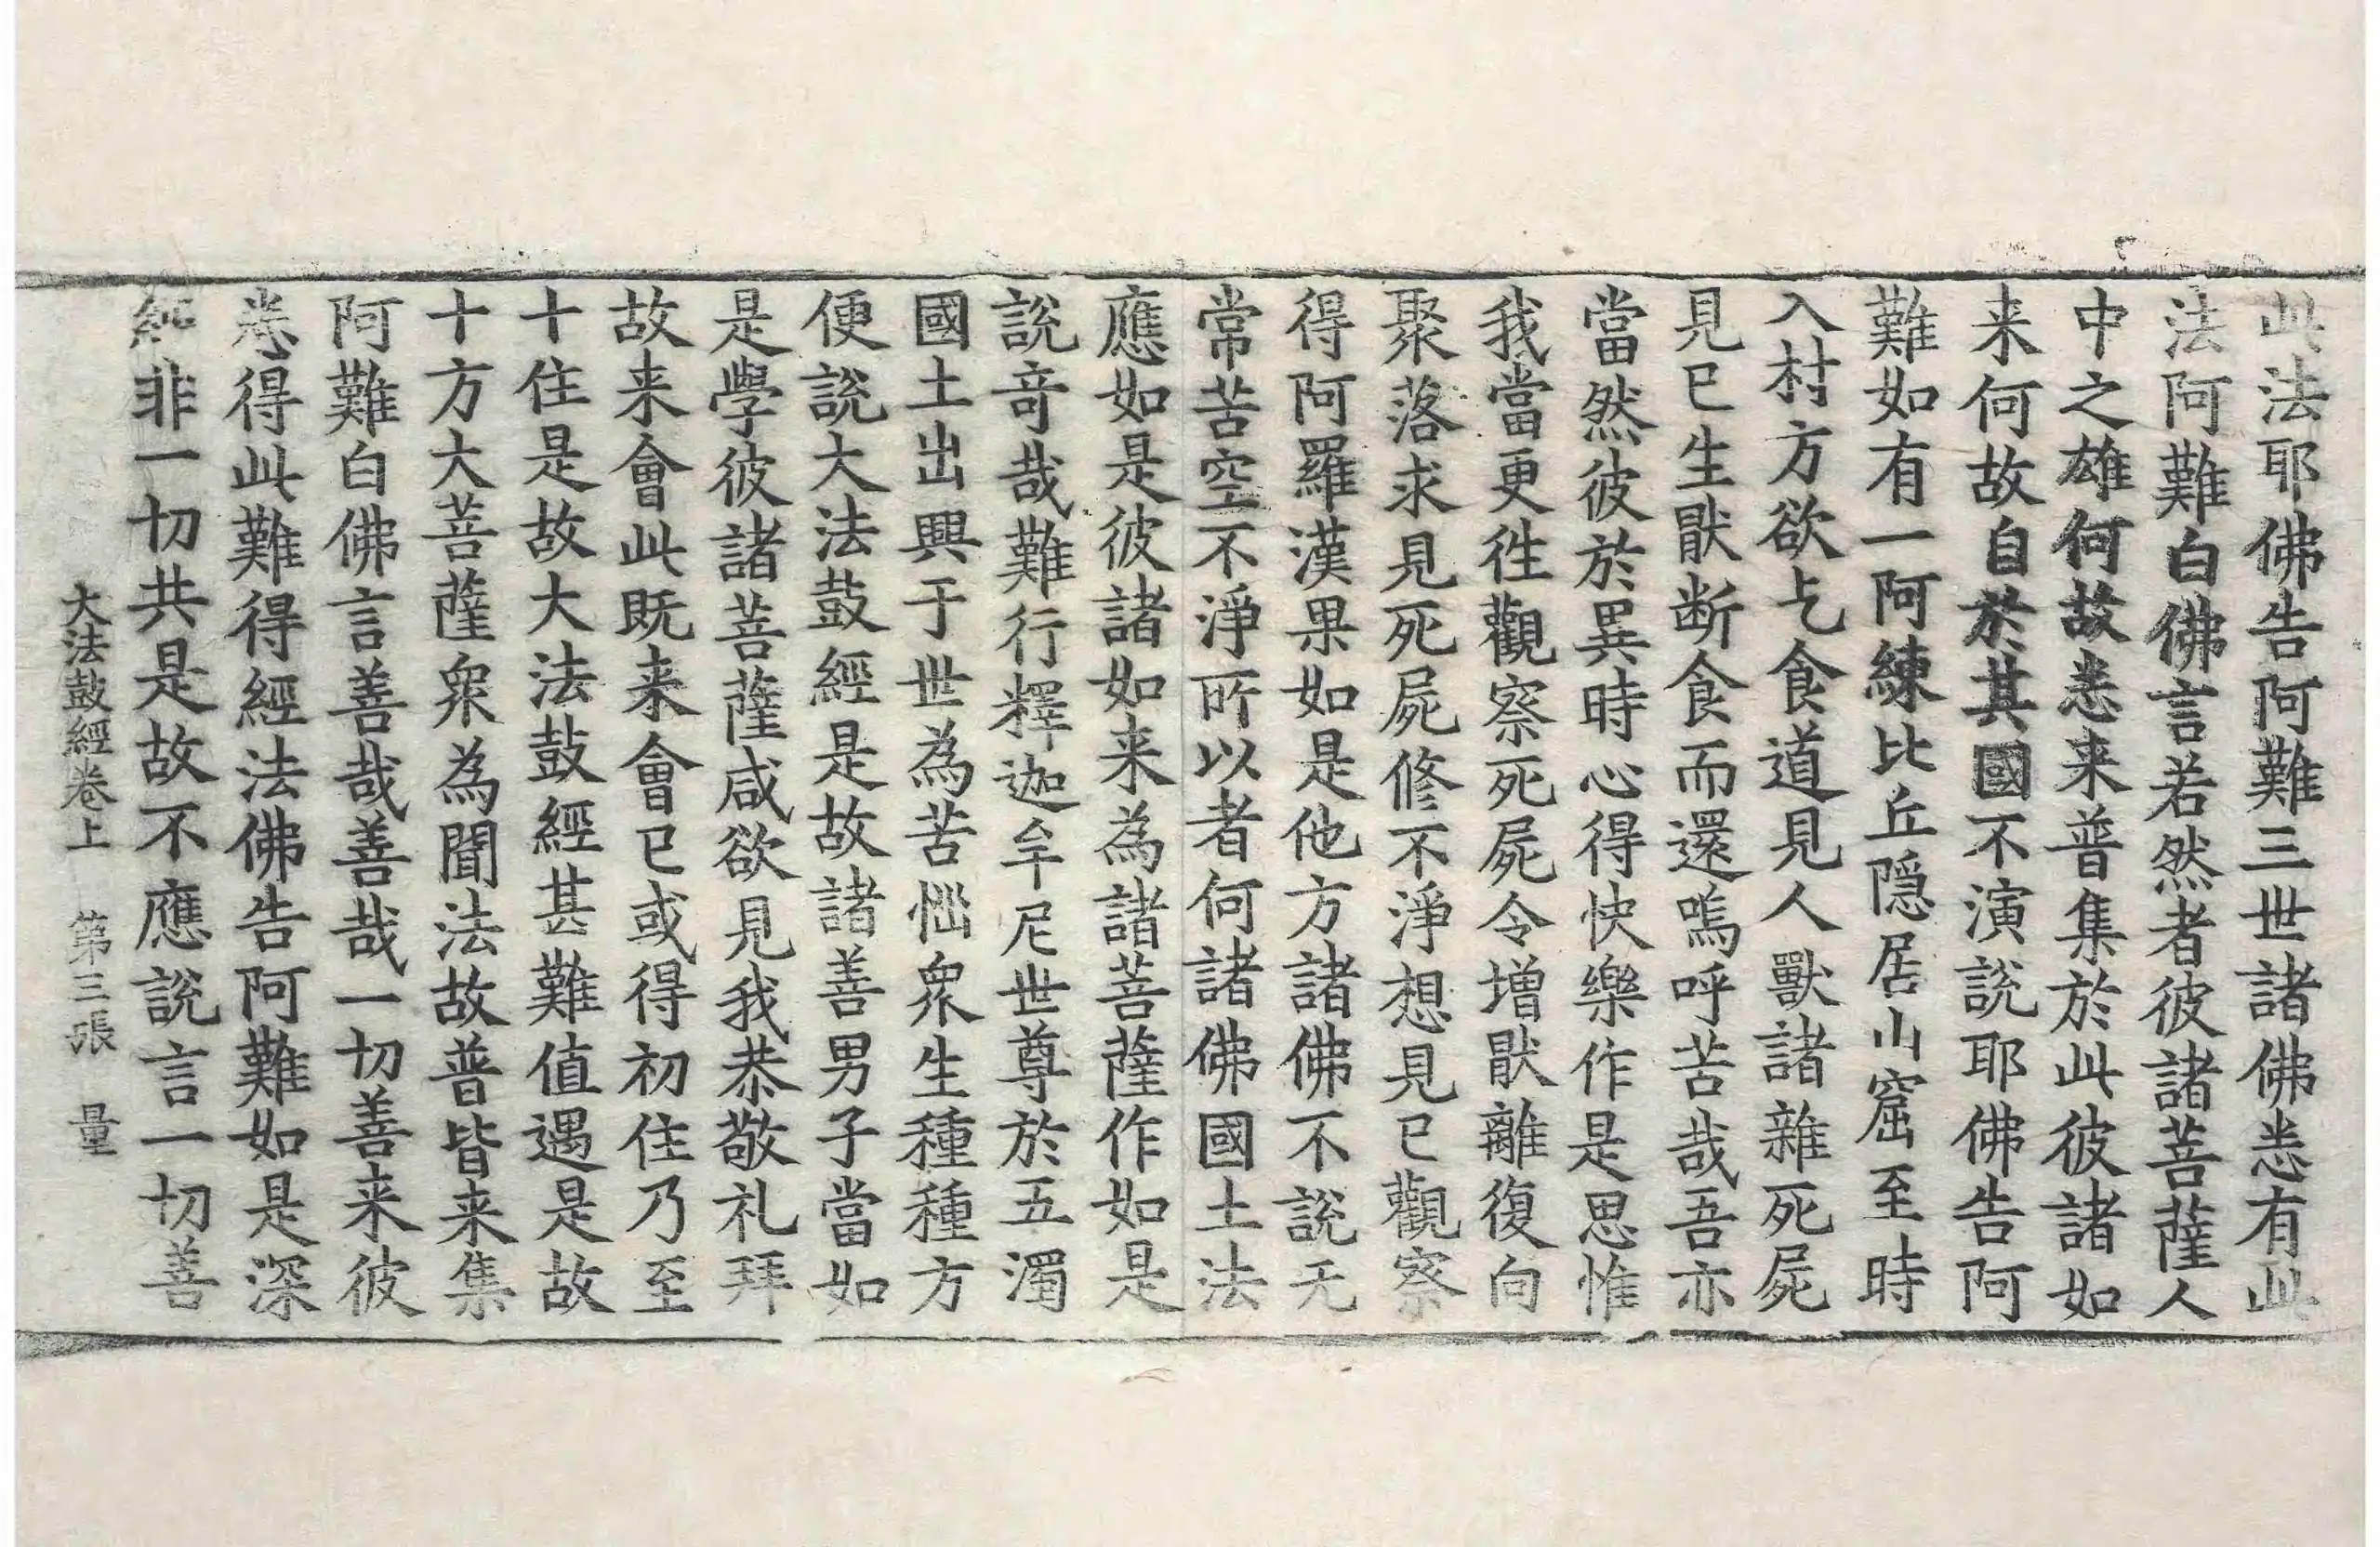 此法耶佛告阿難三世諸佛悉有此
法阿難白佛言若然者彼諸菩薩人
中之雄何故悉来普集於此彼諸如
来何故自於其國不演說耶佛告阿
難如有一阿練比丘隠居山窟至時
入村方欲乞食道見人獸諸雜死屍
見已生猒断食而還嗚呼苦哉吾亦
當然彼於異時心得快樂作是思惟
我當更徃觀察死屍令增猒離復向
聚落求見死屍修不淨想見已觀察
得阿羅漢果如是他方諸佛不說无
常苦空不淨所以者何諸佛國土法
應如是彼諸如来為諸菩薩作如是
說奇哉難行釋迦牟尼世尊於五濁
國土出興于世為苦惱衆生種種方
便說大法鼓經是故諸善男子當如
是學彼諸菩薩咸欲見我恭敬礼拜
故来會此既来會已或得初住乃至
十住是故大法鼓經甚難值遇是故
十方大菩薩衆為聞法故普皆来集
阿難白佛言善哉善哉一切善来彼
悉得此難得經法佛告阿難如是深
經非一切共是故不應說言一切善
大法鼓經卷上 第三張 量